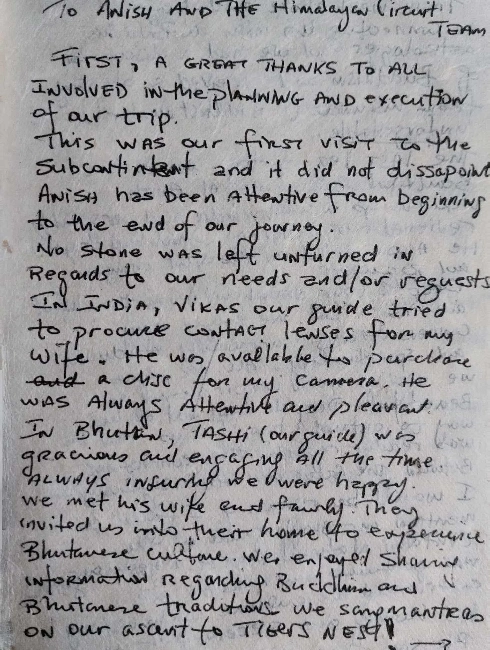 To ANISH AND THE Himalayan Circuit
TEAM
FIRST, A GREAT THANKS TO ALL
INVOLVED in the planning AND execution
of our trip.
This was our first visit to the
Subcontintent and it did not dissapoint
ANISH has been Attentive from beginning
to the end of our journey.
No stone was left unturned in
Regards to our needs and/or requests
IN INDIA, VIKAS our guide tried
to procure contact lenses for my
wife. He was available to purchase
and a disc for my camera. He
was Always Attentive and pleasant.
In Bhuttan, TASHI (our guide) was
gracious and engaging all the time
ALWAYS insuring we were happy.
we met his wife and family. They
invited us into their home to experience
Bhutanese culture. We enjoyed sharing
information Regarding Buddhism and
Bhutanese traditions. we sang mantras
on our ascent to TIGERS NEST!